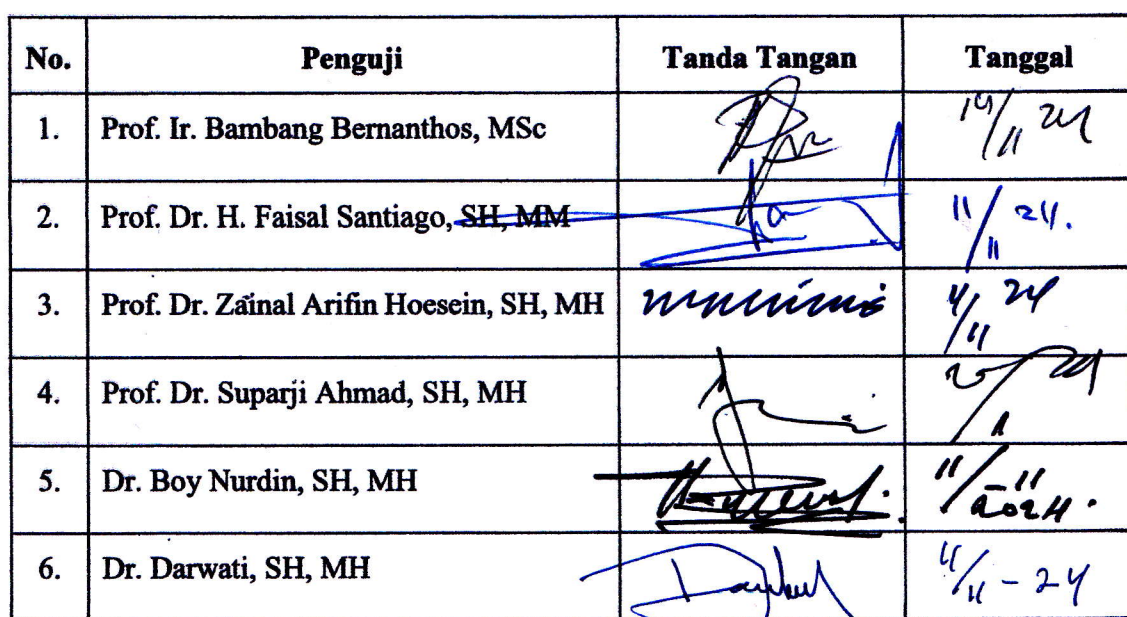 No. Penguji Tanda Tangan Tanggal
1. Prof. Ir. Bambang Bernanthos, MSc
2. Prof. Dr. H. Faisal Santiago, SH, MM 11/11 24.
3. Prof. Dr. Zainal Arifin Hoesein, SH, MH
4. Prof. Dr. Suparji Ahmad, SH, MH
5. Dr. Boy Nurdin, SH, MH 11/11 - 2024.
6. Dr. Darwati, SH, MH